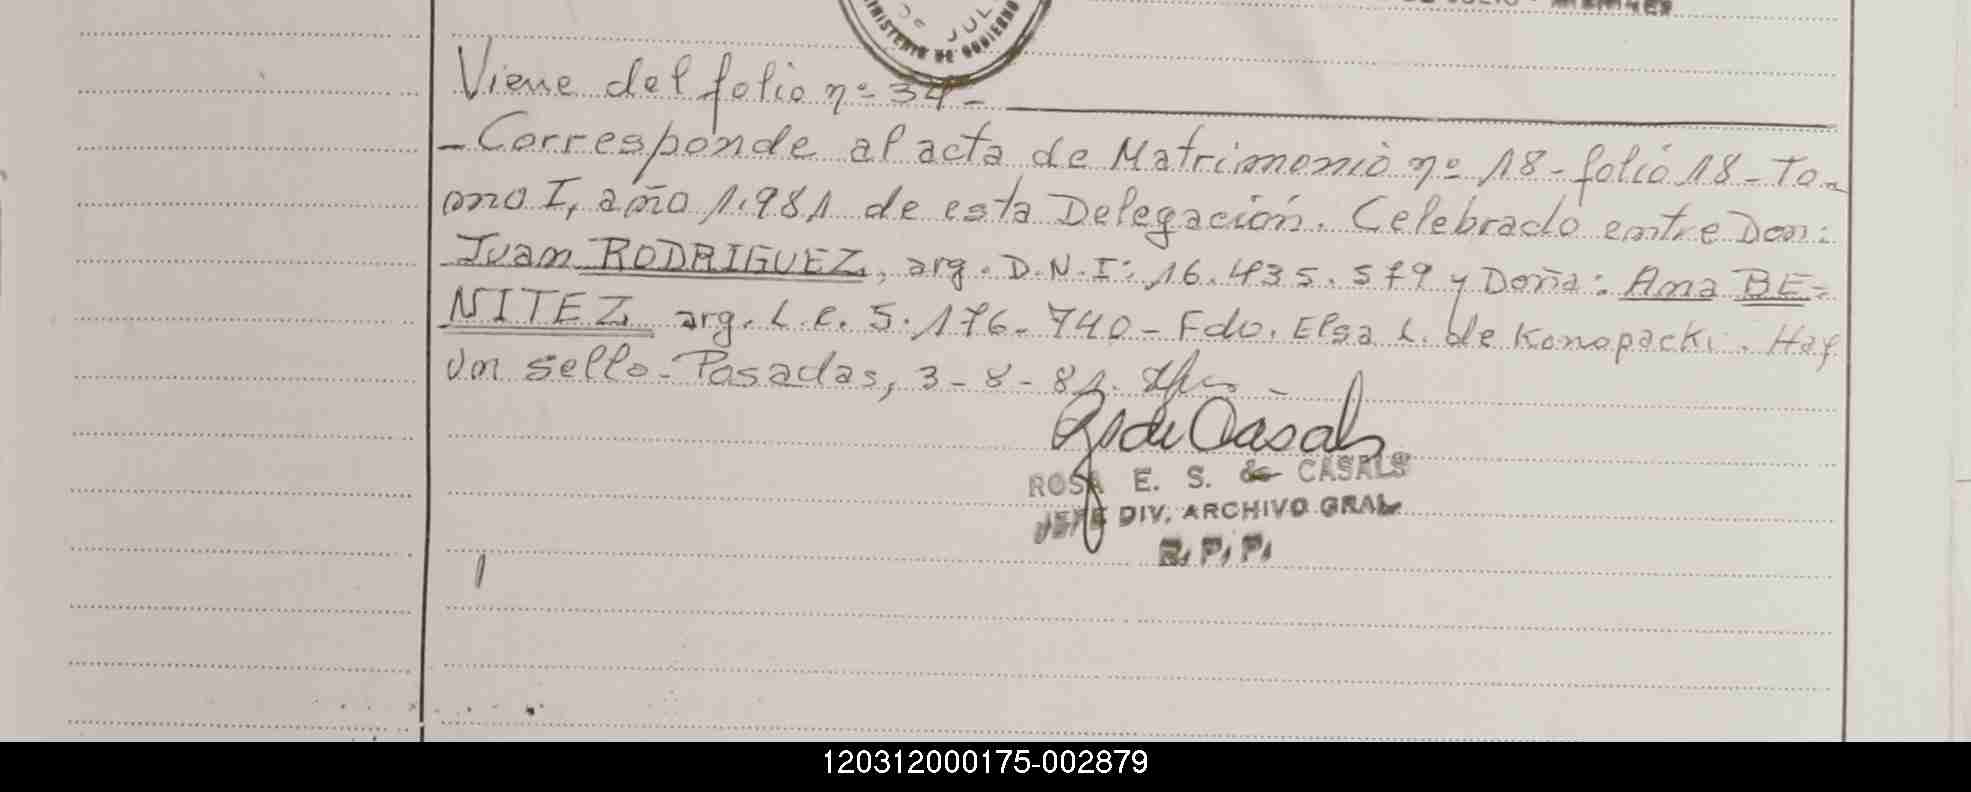 DE JUL
MINISTERIO DE GOBIERNO
Viene del folio nº 34-
- Corresponde al acta de Matrimonio nº 18 - folio 18 - To-
mo I, año 1.981 de esta Delegación. Celebrado entre Don:
Juan RODRIGUEZ, arg. D.N.I: 16.435.579 y Doña: Ana BE-
NITEZ arg. L.C. 5.176.740 - Fdo. Elsa L. de Konopacki. Hay
un sello - Posadas, 3-8-81.
R de Casals
ROSA E. S. de CASALS
JEFE DIV. ARCHIVO GRAL
R. P. P.
120312000175-002879